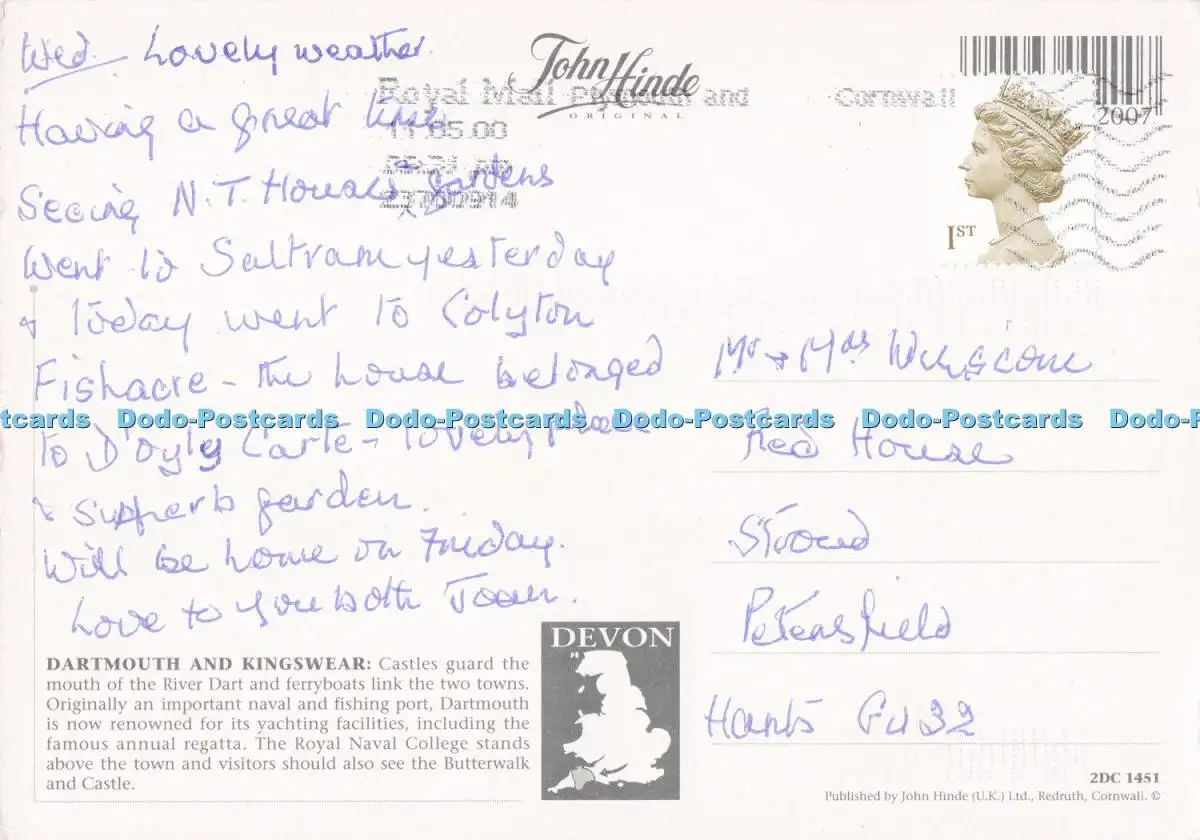 Wed. Lovely weather.
Having a great time
Seeing N.T. Houses gardens
Went to Saltram yesterday
& Today went to Colyton
Fishacre - the house belonged
to D'oyly Carte - lovely place
& supperb garden.
Will be home on Friday.
Love to you both Joan.
John Hinde
ORIGINAL
Royal Mail and Cornwall
11.05.00
2007
1ST
Mr & Mrs
Red House
Stroud
Petersfield
Hants GU32
tcards Dodo-Postcards Dodo-Postcards Dodo-Postcards Dodo-Postcards Dodo-P
DARTMOUTH AND KINGSWEAR: Castles guard the
mouth of the River Dart and ferryboats link the two towns.
Originally an important naval and fishing port, Dartmouth
is now renowned for its yachting facilities, including the
famous annual regatta. The Royal Naval College stands
above the town and visitors should also see the Butterwalk
and Castle.
DEVON
2DC 1451
Published by John Hinde (U.K.) Ltd., Redruth, Cornwall. ©